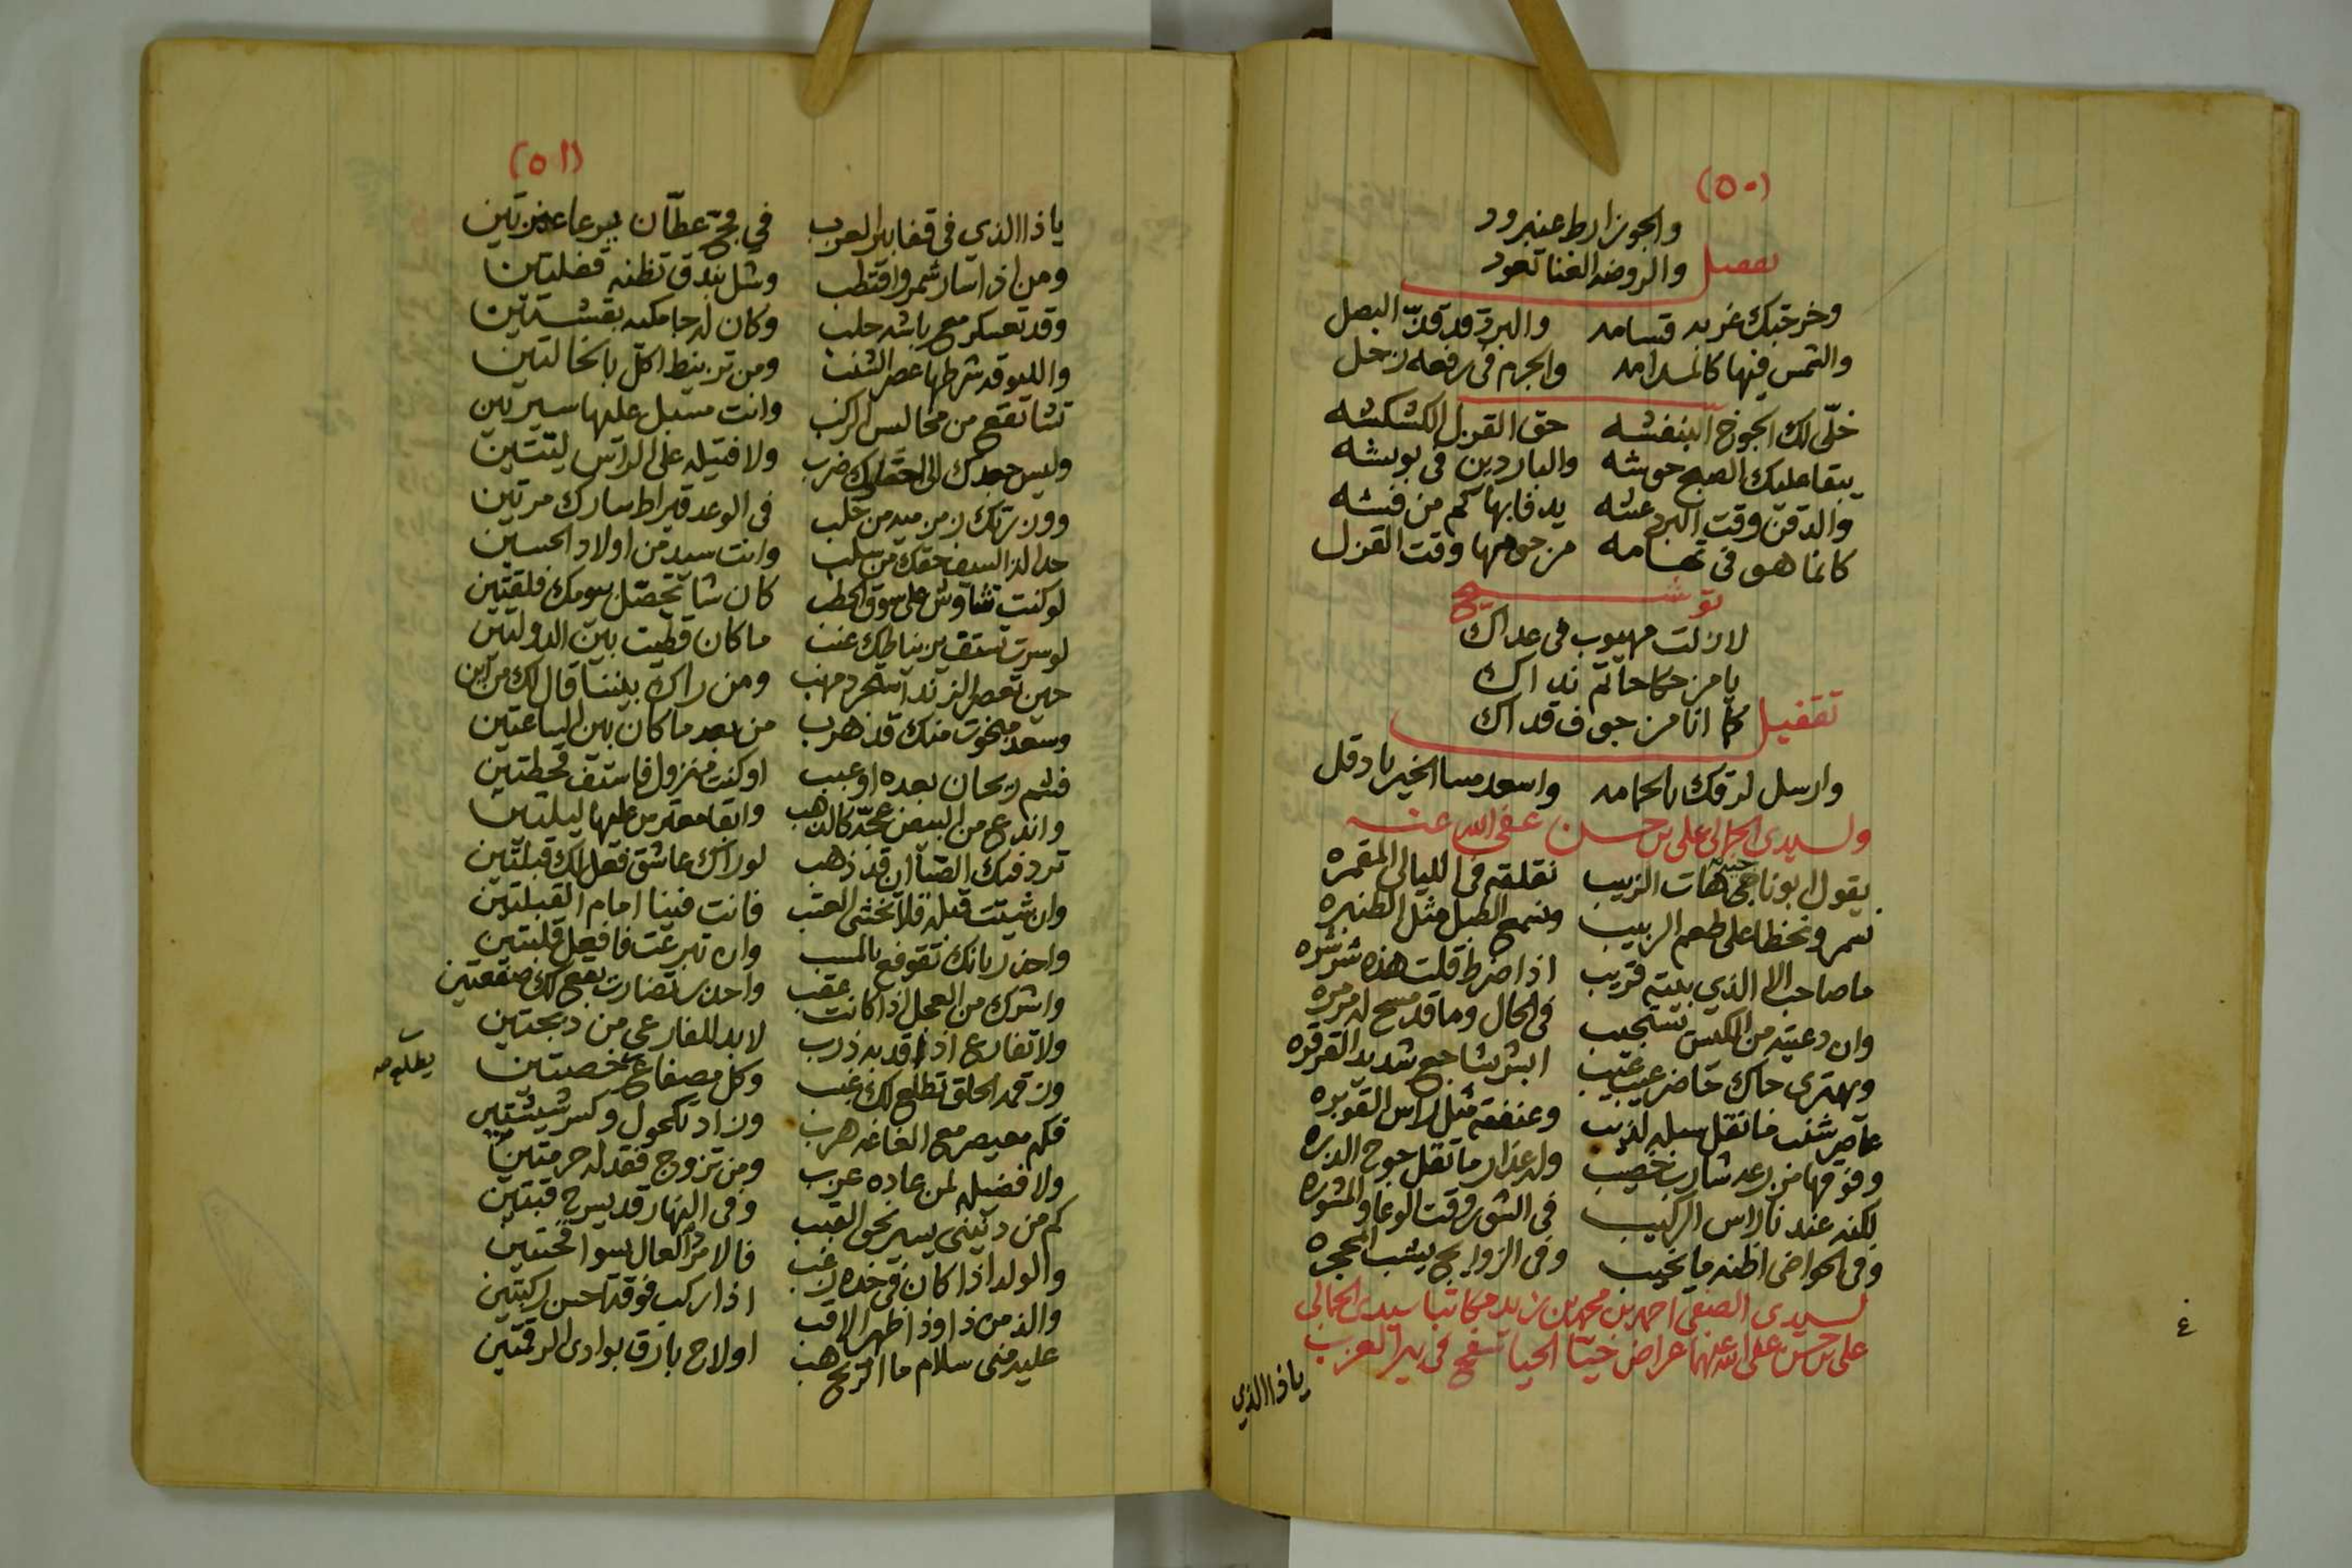 (٥٠)
والجوز ارط عنبرود
تقفيل
والروضه الغنا تعود
وخرجتك غربه قسامه والبرق قد قدّ البصل
والشمس فيها كالمدامه والجرم في رفعه زحل
خلّى لك الجوخ البنفشه حق القزل الكشكشه
يبقا عليك الصبح حوشه والباردين في بوبشه
والدقن وقت البرد عشه يدفا بها كم من فشه
كانما هو في تهامه من حومها وقت القزل
توشيح
لا زلت مهيوب في عداك
يا من حكا حاتم نداك
تقفيل
كما انا من جوف قداك
وارسل لرقك بالحمامه واسعد مسا الخير يا دقل
ولسيدي الجمالي علي بن حسن عفى الله عنه
يقول ابو ناجي هات الزبيب نقلقه في الليالي المقمره
نسمر ونخطا على طعم الزبيب ونسمع الطبل مثل الطنبره
ما صاحب الا الذي بيته قريب اذا ضرط قلت هذه شرشره
وان دعيته من الكبس تستجيب في الحال وما قد مسح له مرمره
ويهتري حاك حاضر عيب عتيب ابشر بشاجع شديد القرقره
عاصر شنب ما تقل سبله لذيب وعنفقه مثل راس القوبره
وفوقها من رعد شارب خصيب وله عذار ما تقل جوح الدبره
لكنه عندنا راس الركيب في الشور وقت الوعا والمشوره
وفي الحواضي اظنه ما يخيب وفي الزوابج يشب المجمره
لسيدي الصفي احمد بن محمد بن زيد مكاتبا سيدي الجمالي
علي بن حسن عفى الله عنهما عراض حيّا الحيا تسفح في بير العزب
يا ذا الذي
٤
(٥١)
يا ذا الذي في قفا بير العزب في فج عطّان يرعا عنزتين
ومن اذا سار شمر واقتطب وشل بندق تظنه قضلتين
وقد تعسكر مع باشه حلب وكان له جامكيه بقشتين
والليو قد شرطها عصر الشنب ومن تربيط اكل باخالتين
تشا تقع من مخاليس الركب وانت مسبل عليها سيرتين
وليس جدك الى احتالك ضرب ولا فتيله على الراس لتتين
وون تركك زمزميه من حلب في الوعد قيراط سارك مرتين
حد الذا السيف حقك من سلب وانت سيد من اولاد الحسين
لو كنت تشاوش على سوق الحطب كان شا تحصّل سومك فلقتين
لو سرت تستقي بن بياطك عنب ما كان قطيت بين الدولتين
حين تعصر الزند استجرد مهب ومن راك بيننا قال لك من اين
وسعد مبخوت منك قد هرب من بعد ما كان بين الساعتين
فشم ريحان بعده او عبب او كنت مهزول فاستف قحطتين
واندع من البيض عجه كالذهب وابقا مقتر من عليها ليلتين
تردفيك الصبا ان قد ذهب لو راك عاشق فعل لك قبلتين
وان شيت قبله فلا تخشى العتب فانت فينا امام القبلتين
واحذر بانك تقوفع بالمسب وان تبرعت فافعل قلبتين
واشرك من العجل اذا كانت عقب واحذر تضارب يقع لك صفعتين
ولا تفارع اذا قد به ذرب لا بد للفارعي من دبجتين
وزقمه الحلق تطلع لك غبب وكل مصفاع خصتين
يطلع معه
فكم معيصر مع الفاغه هرب وزاد تكحول وكسر شيشتين
ولا فضيله لمن عاده عزب ومن تزوج فقد له حرمتين
كم من دبيني يسير نحو القبب وفي النهار قد يسرح قبتين
والولد اذا كان في خده زغب فالامر العال يسوا تحتين
والذمن ذا وذا ظهر الاقب اذا ركب فوقه احسن ركبتين
عليه مني سلام ما الريح هب اولاح بارق بوادي الرقمتين